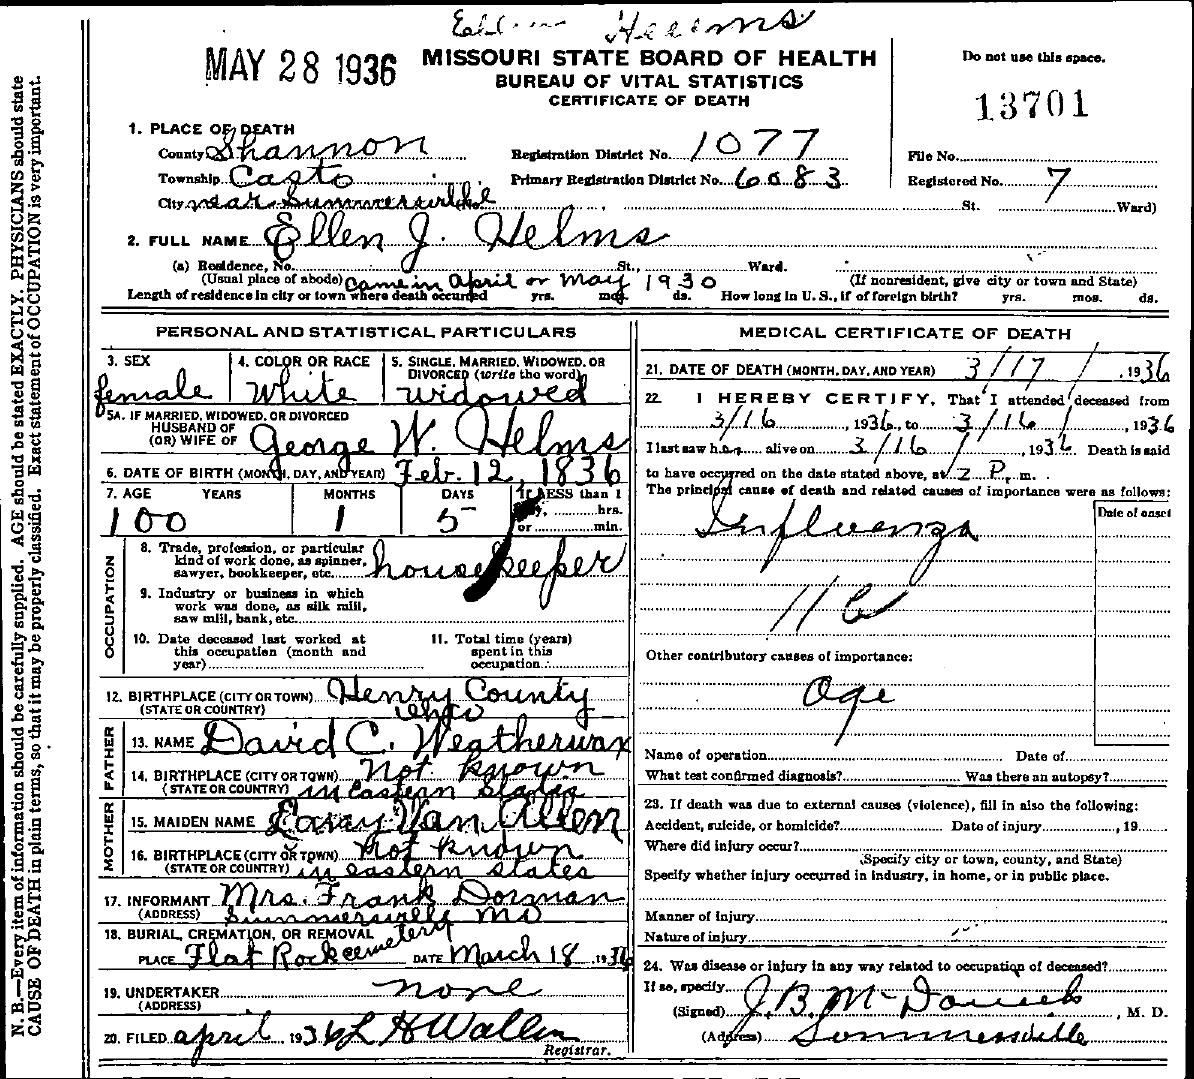 Helms
MAY 28 1936
MISSOURI STATE BOARD OF HEALTH
BUREAU OF VITAL STATISTICS
CERTIFICATE OF DEATH
Do not use this space.
13701
1. PLACE OF DEATH
County Shannon
Township Casto
City near Summersville
Registration District No. 1077
Primary Registration District No. 6083
File No.
Registered No. 7
St. Ward)
2. FULL NAME Ellen J. Helms
(a) Residence, No. St., Ward.
(Usual place of abode) came in April or May 1930 (If nonresident, give city or town and State)
Length of residence in city or town where death occurred yrs. mos. ds. How long in U. S., if of foreign birth? yrs. mos. ds.
PERSONAL AND STATISTICAL PARTICULARS
3. SEX
female
4. COLOR OR RACE
White
5. SINGLE, MARRIED, WIDOWED, OR
DIVORCED (write the word)
widowed
5A. IF MARRIED, WIDOWED, OR DIVORCED
HUSBAND OF
(OR) WIFE OF George W. Helms
6. DATE OF BIRTH (MONTH, DAY, AND YEAR) Feb. 12, 1836
7. AGE YEARS MONTHS DAYS If LESS than 1
day, hrs.
100 1 5 or min.
OCCUPATION
8. Trade, profession, or particular
kind of work done, as spinner,
sawyer, bookkeeper, etc. housekeeper
9. Industry or business in which
work was done, as silk mill,
saw mill, bank, etc.
10. Date deceased last worked at
this occupation (month and
year)
11. Total time (years)
spent in this
occupation
12. BIRTHPLACE (CITY OR TOWN) Henry County
(STATE OR COUNTRY)
FATHER
13. NAME David C. Weatherwax
14. BIRTHPLACE (CITY OR TOWN) Not known
(STATE OR COUNTRY) in eastern states
MOTHER
15. MAIDEN NAME Van Allen
16. BIRTHPLACE (CITY OR TOWN) Not known
(STATE OR COUNTRY) in eastern states
17. INFORMANT Mrs. Frank Dorman
(ADDRESS) Summersville Mo
18. BURIAL, CREMATION, OR REMOVAL
PLACE Flat Rock cemetery DATE March 18, 1936
19. UNDERTAKER none
(ADDRESS)
20. FILED april, 1936 L H Wallin
Registrar.
MEDICAL CERTIFICATE OF DEATH
21. DATE OF DEATH (MONTH, DAY, AND YEAR) 3/17/, 1936
22. I HEREBY CERTIFY, That I attended deceased from
3/16, 1936, to 3/16, 1936
I last saw h er alive on 3/16/, 1936 Death is said
to have occurred on the date stated above, at 2 P. m.
The principal cause of death and related causes of importance were as follows:
Date of onset
Influenza
Other contributory causes of importance:
Age
Name of operation Date of
What test confirmed diagnosis? Was there an autopsy?
23. If death was due to external causes (violence), fill in also the following:
Accident, suicide, or homicide? Date of injury, 19
Where did injury occur?
(Specify city or town, county, and State)
Specify whether injury occurred in industry, in home, or in public place.
Manner of injury
Nature of injury
24. Was disease or injury in any way related to occupation of deceased?
If so, specify
(Signed) J. B. , M. D.
(Address) Sommersville
N. B.—Every item of information should be carefully supplied. AGE should be stated EXACTLY. PHYSICIANS should state
CAUSE OF DEATH in plain terms, so that it may be properly classified. Exact statement of OCCUPATION is very important.